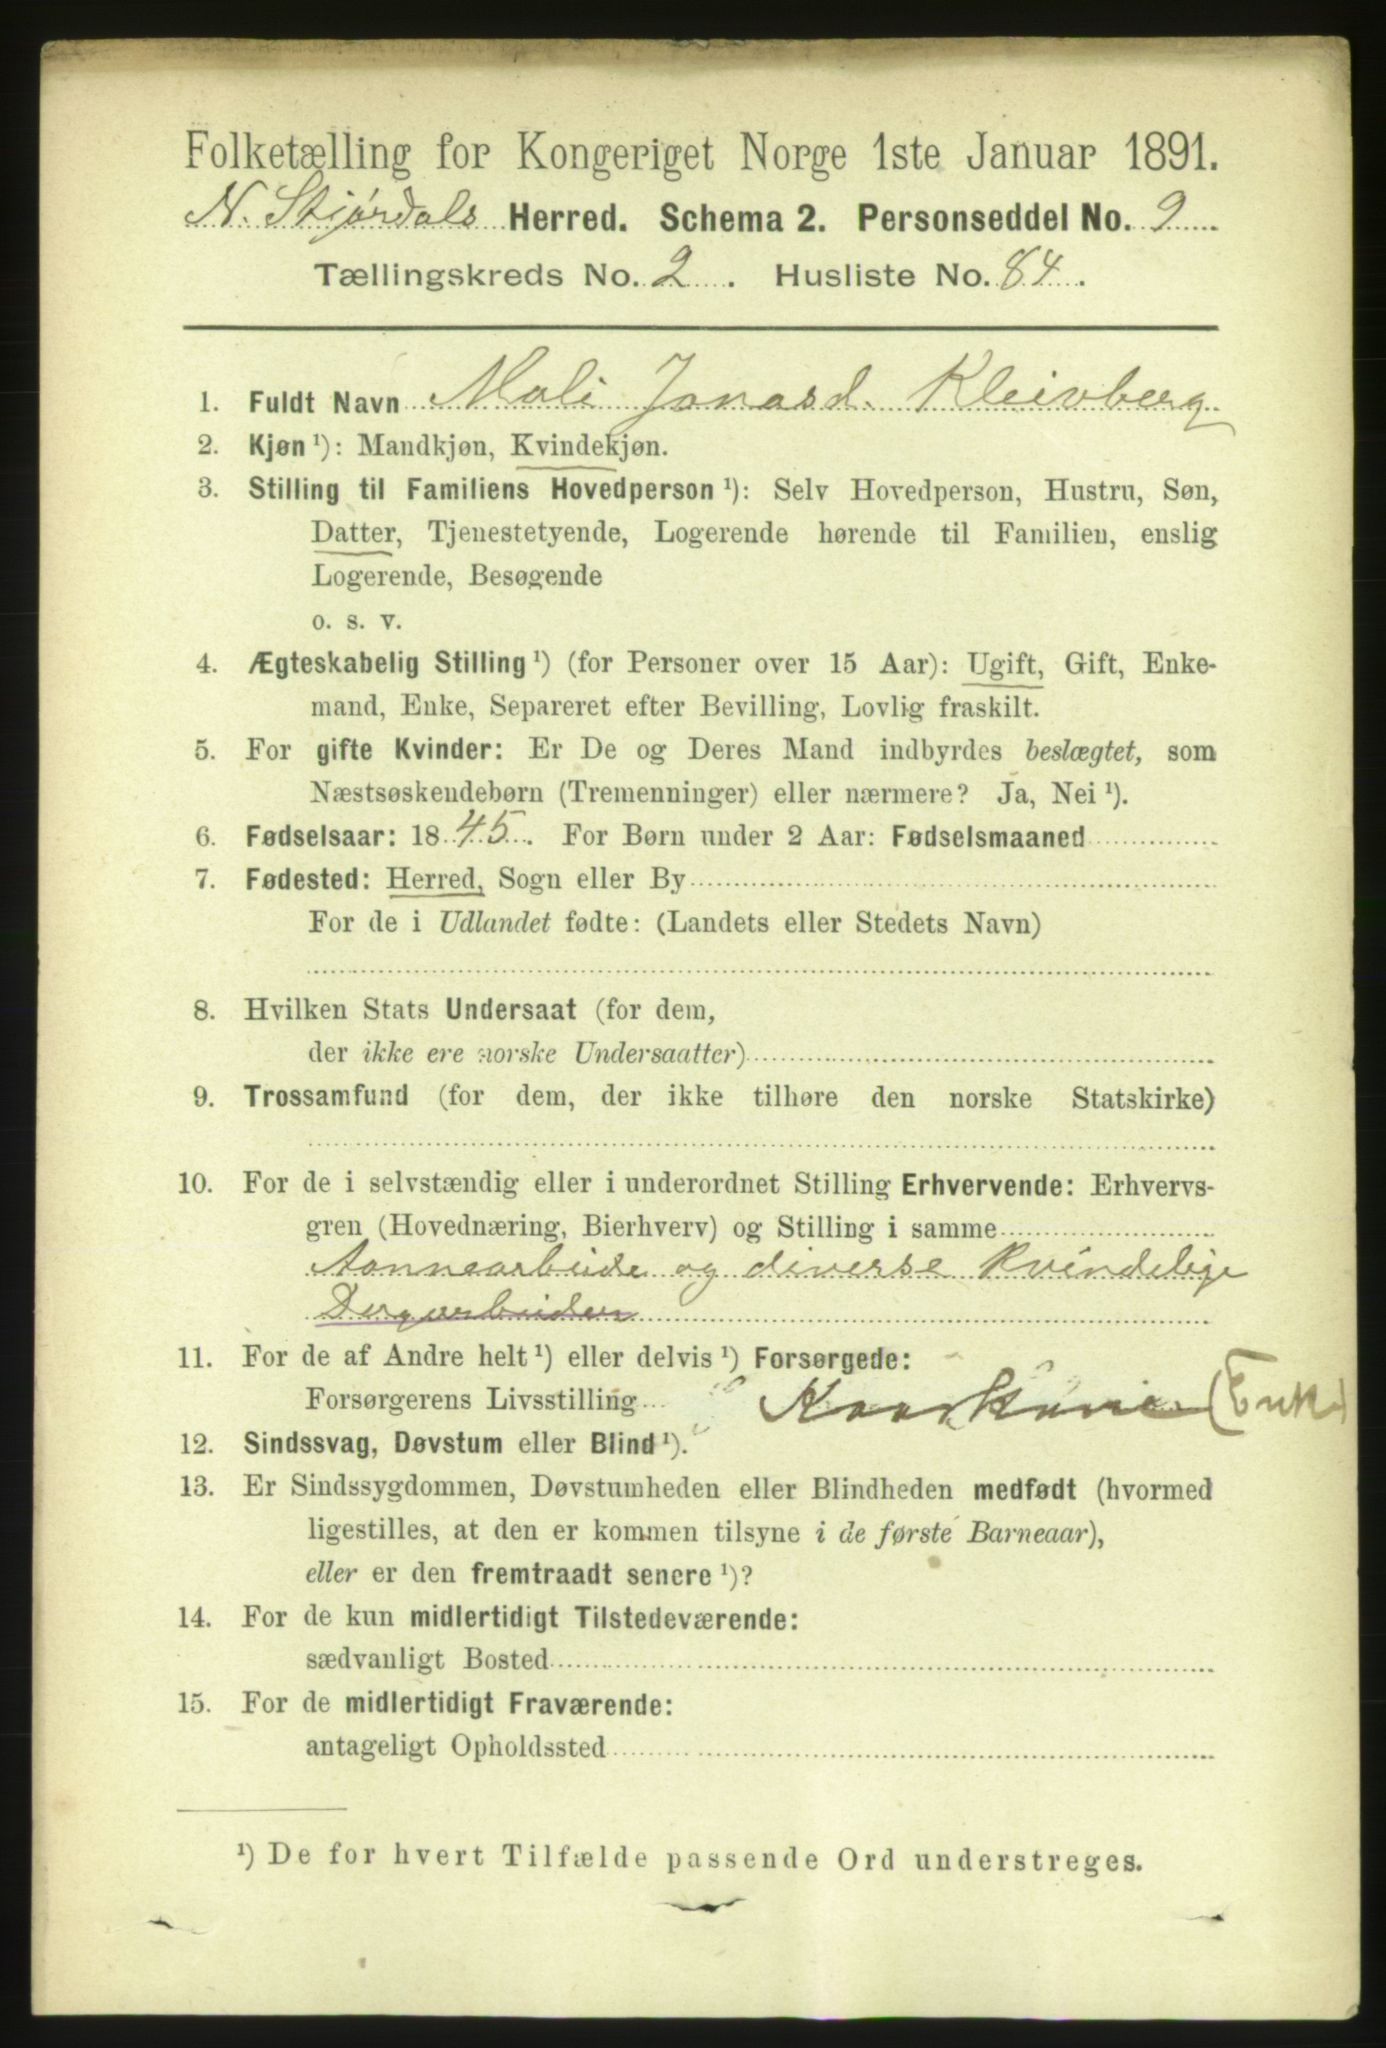 Folketælling for Kongeriget Norge 1ste Januar 1891.
N. Stjørdals Herred. Schema 2. Personseddel No. 9
Tællingskreds No. 2. Husliste No. 84.
1. Fuldt Navn Mali Jonasd. Kleivberg
2. Kjøn ¹): Mandkjøn, Kvindekjøn.
3. Stilling til Familiens Hovedperson ¹): Selv Hovedperson, Hustru, Søn,
Datter, Tjenestetyende, Logerende hørende til Familien, enslig
Logerende, Besøgende
o. s. v.
4. Ægteskabelig Stilling ¹) (for Personer over 15 Aar): Ugift, Gift, Enke-
mand, Enke, Separeret efter Bevilling, Lovlig fraskilt.
5. For gifte Kvinder: Er De og Deres Mand indbyrdes beslægtet, som
Næstsøskendebørn (Tremenninger) eller nærmere? Ja, Nei ¹).
6. Fødselsaar: 1845. For Børn under 2 Aar: Fødselsmaaned
7. Fødested: Herred, Sogn eller By
For de i Udlandet fødte: (Landets eller Stedets Navn)
8. Hvilken Stats Undersaat (for dem,
der ikke ere norske Undersaatter)
9. Trossamfund (for dem, der ikke tilhøre den norske Statskirke)
10. For de i selvstændig eller i underordnet Stilling Erhvervende: Erhvervs-
gren (Hovednæring, Bierhverv) og Stilling i samme
Aannearbeide og diverse kvindelige
Dagarbeider
11. For de af Andre helt ¹) eller delvis ¹) Forsørgede:
Forsørgerens Livsstilling Kaarkone (Enke)
12. Sindssvag, Døvstum eller Blind ¹).
13. Er Sindssygdommen, Døvstumheden eller Blindheden medfødt (hvormed
ligestilles, at den er kommen tilsyne i de første Barneaar),
eller er den fremtraadt senere ¹)?
14. For de kun midlertidigt Tilstedeværende:
sædvanligt Bosted
15. For de midlertidigt Fraværende:
antageligt Opholdssted
¹) De for hvert Tilfælde passende Ord understreges.